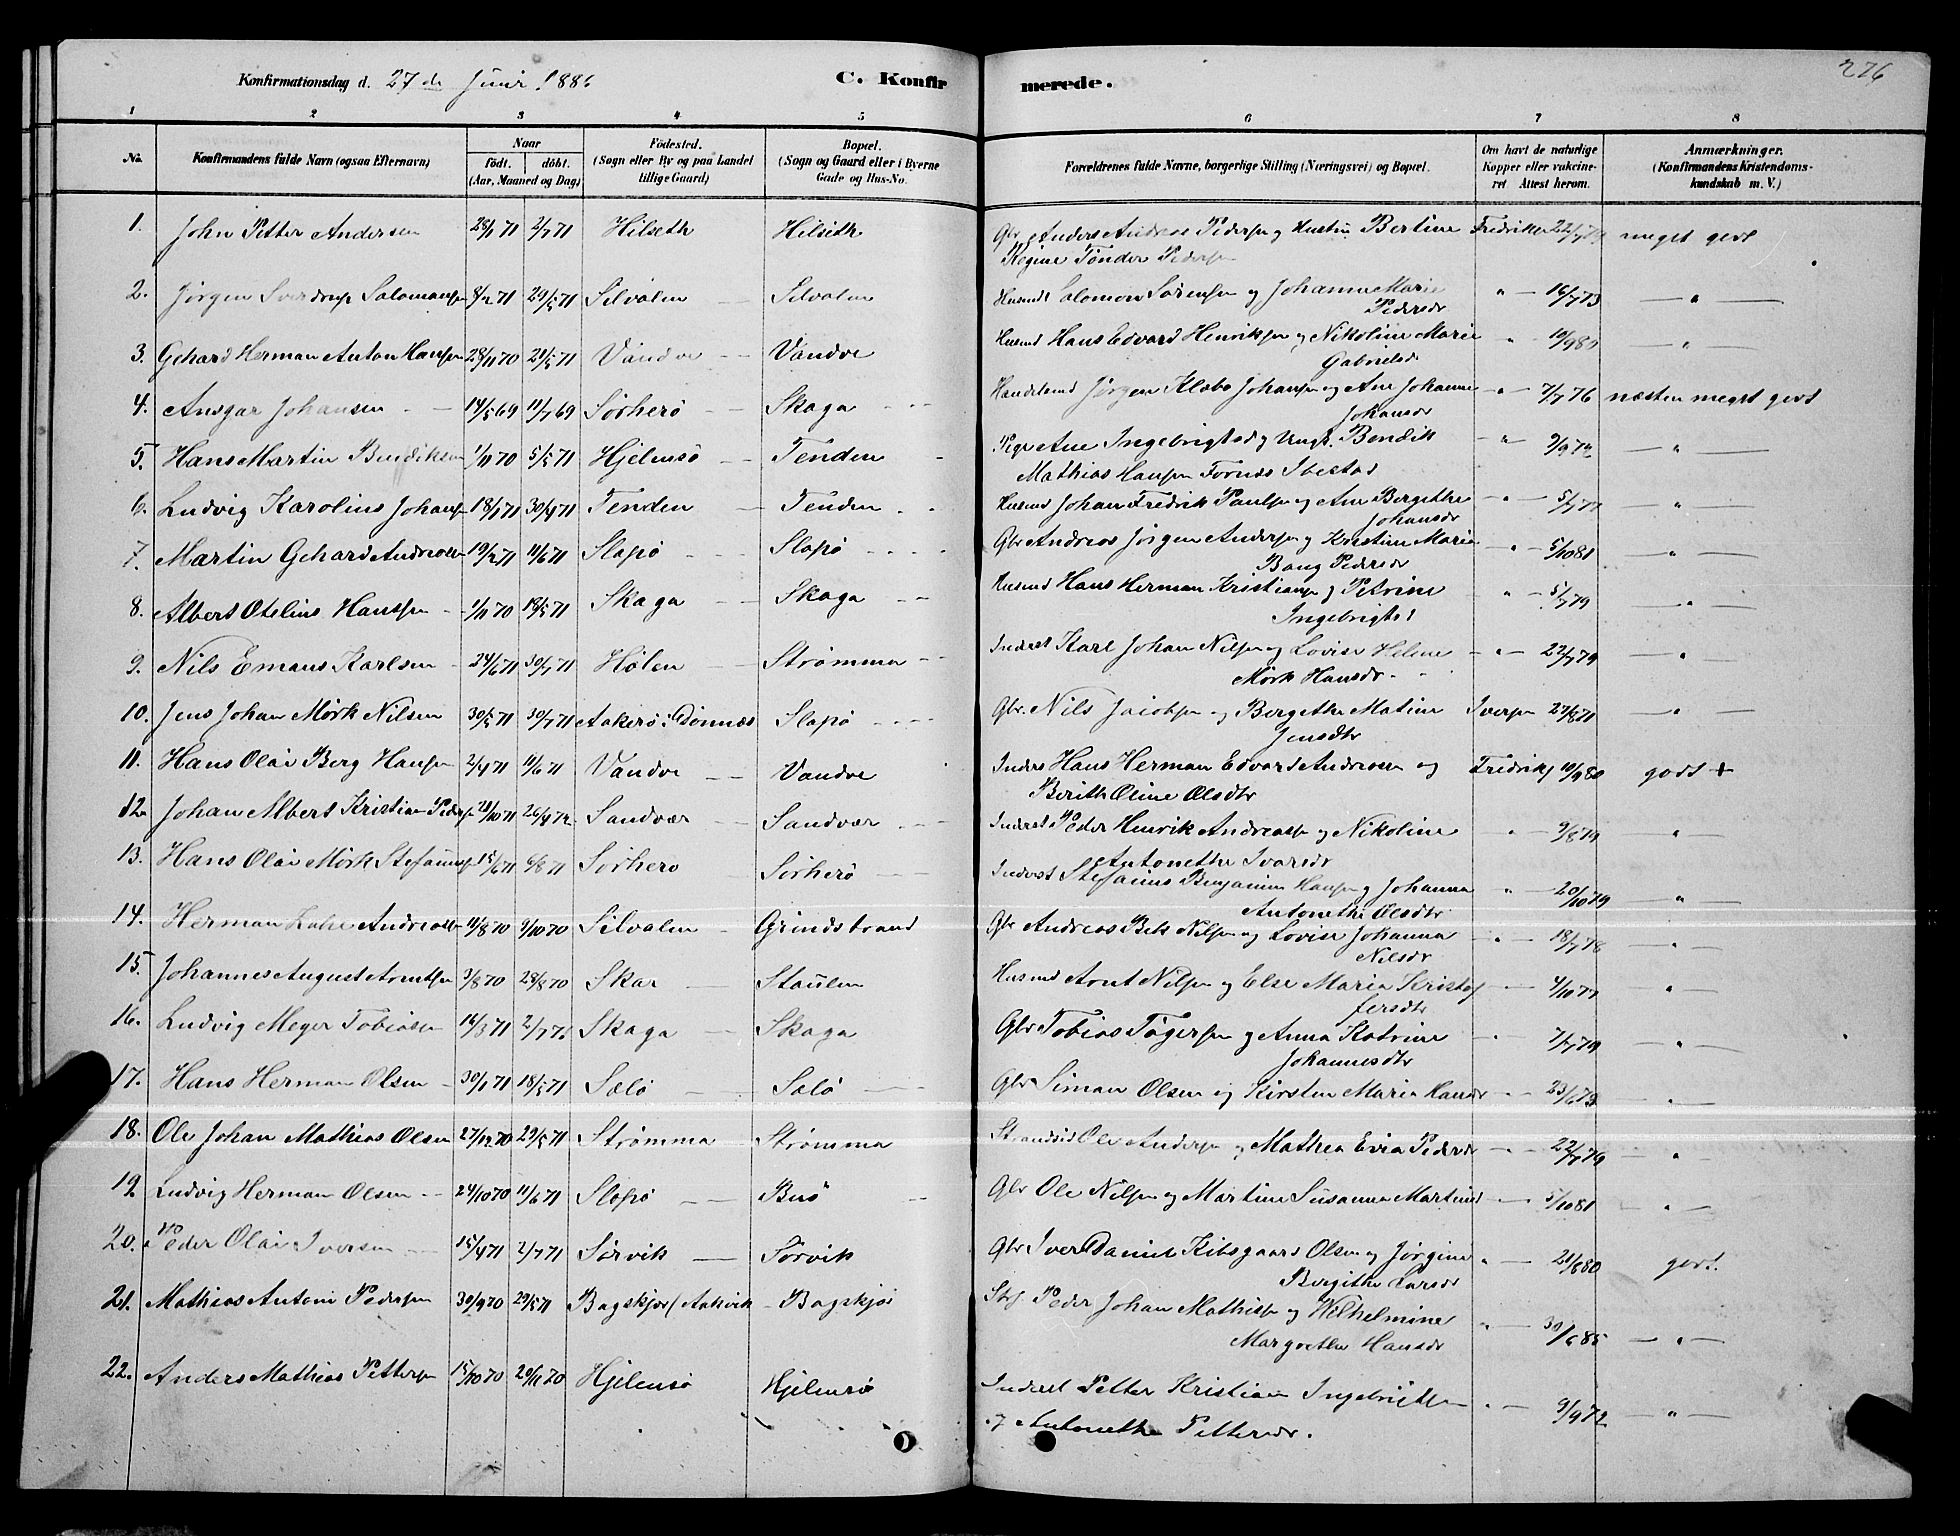 276
Konfirmationsdag d. 27de Juni 1886 C. Konfirmerede.
1 2 3 4 5 6 7 8
No. Konfirmandens fulde Navn (ogsaa Efternavn) Naar födt. döbt. (Aar, Maaned og Dag) Födested. (Sogn eller By og paa Landet tillige Gaard) Bopæl. (Sogn og Gaard eller i Byerne Gade og Hus-No. Forældrenes fulde Navne, borgerlige Stilling (Næringsvei) og Bopæl. Om havt de naturlige Kopper eller vakcineret. Attest herom. Anmærkninger. (Konfirmandens Kristendomskundskab m. V.)
1. John Petter Andersen 28/1 71 2/7 71 Hilseth Hilseth Gbr. Anders Andreas Pedersen og Hustru Bertine Fredrikse 22/7 79 meget godt
Regine Tønder Peders
2. Jørgen Sverdrup Salomonsen 8/2 71 29/5 71 Silvalen Silvalen Husmd Salomon Sørensen og Johanne Marie " 16/7 73 "
Pedersdr
3. Gehard Herman Anton Hansen 28/11 70 29/5 71 Vandve Vandve Husmd Hans Edvard Henriksen og Nikoline Marie " 10/9 80 "
Gabrielsdr
4. Ansgar Johansen 14/5 69 11/7 69 Sørherø Skaga Handelsmd Jørgen Klæbo Johansen og Ane Johanne " 7/7 76 næsten meget godt
Johansdr
5. Hans Martin Bendiksen 1/11 70 5/5 71 Hjelmsø Tenden Pige Ane Ingebrigtsd og Ungk. Bendik " 9/9 72 "
Mathias Hansen Fornæs Ibestad
6. Ludvig Karolius Johansen 18/1 71 30/4 71 Tenden Tenden Husmd Johan Fredrik Paulsen og Ane Bergethe " 5/7 77 "
Johansdr
7. Martin Gehard Andreasen 19/2 71 11/6 71 Slapø Slapø Gbr Andreas Jørgen Andersen og Kristine Marie " 5/10 81 "
Bang Pedersdr
8. Albert Otelius Hanssen 1/11 70 18/5 71 Skaga Skaga Husmd Hans Herman Kristiansen og Petrine " 5/7 79 "
Ingebrigtsd
9. Nils Emaus Karlsen 24/6 71 30/7 71 Hølen Strømma Inderst Karl Johan Nilsen og Lovise Helene " 22/7 79 "
Mørk Hansdr
10. Jens Johan Mørk Nilsen 30/5 71 30/7 71 Aakerø i Dønnæs Slapø Gbr. Nils Jacobsen og Bergethe Matine Iversen 27/8 71 "
Jensdtr
11. Hans Olai Berg Hansen 2/4 71 11/6 71 Vandve Vandve Inders Hans Herman Edvard Andreasen og Fredriks 10/9 80 godt +
Berith Oline Olsdtr
12. Johan Albert Kristian Peders 28/10 71 26/4 72 Sandvær Sandvær Inderst Peder Henrik Andreasen og Nikoline " 9/8 79 "
Antonethe Ivarsdr
13. Hans Olai Mørk Stefanus 15/6 71 6/8 71 Sørherø Sørherø Inderst Stefanus Benjamin Hansen og Johanna " 20/10 79 "
Antonethe Olsdtr
14. Herman Andreasen 11/8 70 9/10 70 Silvalen Grindsbrand Gbr Andreas Beck Nilsen og Lovise Johanna " 18/7 78 "
Nilsdr
15. Johannes August Arntsen 3/8 70 28/8 70 Skar Staulen Husmd Arnt Nilsen og Else Maria Kristof " 4/10 77 "
fersdtr
16. Ludvig Meyer Tobiasen 16/3 71 2/7 71 Skaga Skaga Gbr Tobias Tøgersen og Anna Katrine " 7/7 79 "
Johannesdtr
17. Hans Herman Olsen 30/1 71 18/5 71 Sælø Sælø Gbr Simon Olsen og Kirsten Maria Hansdr " 23/6 79 "
18. Ole Johan Mathias Olsen 27/12 70 29/5 71 Strømma Strømma Strandsid Ole Andersen og Mathea Evia Pedersdr " 22/7 79 "
19 Ludvig Herman Olsen 24/10 70 11/6 71 Slapø Buø Gbr Ole Nilsen og Martine Susanna Martinsd " 5/10 81 "
20. Peder Olai Iversen 15/4 71 2/7 71 Sørvik Sørvik Gbr Iver Daniel Kibsgaard Olsen og Jørgine " 21/8 80 godt.
Bergithe Larsdr
21. Mathias Antoni Pedersen 30/9 70 29/5 71 Bagskjør Bagskjør Peder Johan Mathisen og Wilhelmine " 30/6 85 "
Margrethe Hansdr
22. Anders Mathias Pettersen 15/10 70 20/11 70 Hjelmsø Hjelmsø Inderst Petter Kristian Ingebrigtsen " 9/9 72 "
og Antonethe Pettersdr.